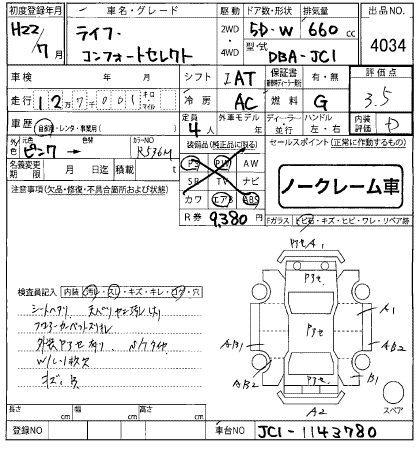 初度登録年月 車名・グレード 駆動 ドア数・形状 排気量 出品NO.
H22/7月 ライフ・ 2WD 4WD 5D-W 660cc 4034
コンフォートセレクト 型式 DBA-JC1
車検 年 月 シフト IAT 保証書 有・無 評価点
走行 127001 キロ マイル 冷房 AC 燃料 G 3.5
車歴 自家用・レンタ・事業用( ) 定員 4人 外車モデル 年 ディーラー 並行 ハンドル 左・右 内装評価 D
外色 元色 ピンク → 色替 カラーNO R536M 装備品(純正品に限る) セールスポイント(正常に作動するもの)
名義変更期限 月 日迄 積載 t PS PW AW
注意事項(欠品・修復・不具合箇所および状態) SR TV ナビ ノークレーム車
カワ エアB ABS
R券 9,380円 Fガラス トビ石・キズ・ヒビ・ワレ・リペア跡
PタセA1
検査員記入 内装 汚れ・スリ・キズ・キレ・コゲ・穴
シートヘタリ
フロアーカーペットスリキレ
外装Pタセ有り
Pタセ
A1
AB1 AB2
AB2 B1
Pタセ
A2 スペア
長さ cm 幅 cm 高さ cm
登録NO 車台NO JC1-1143780